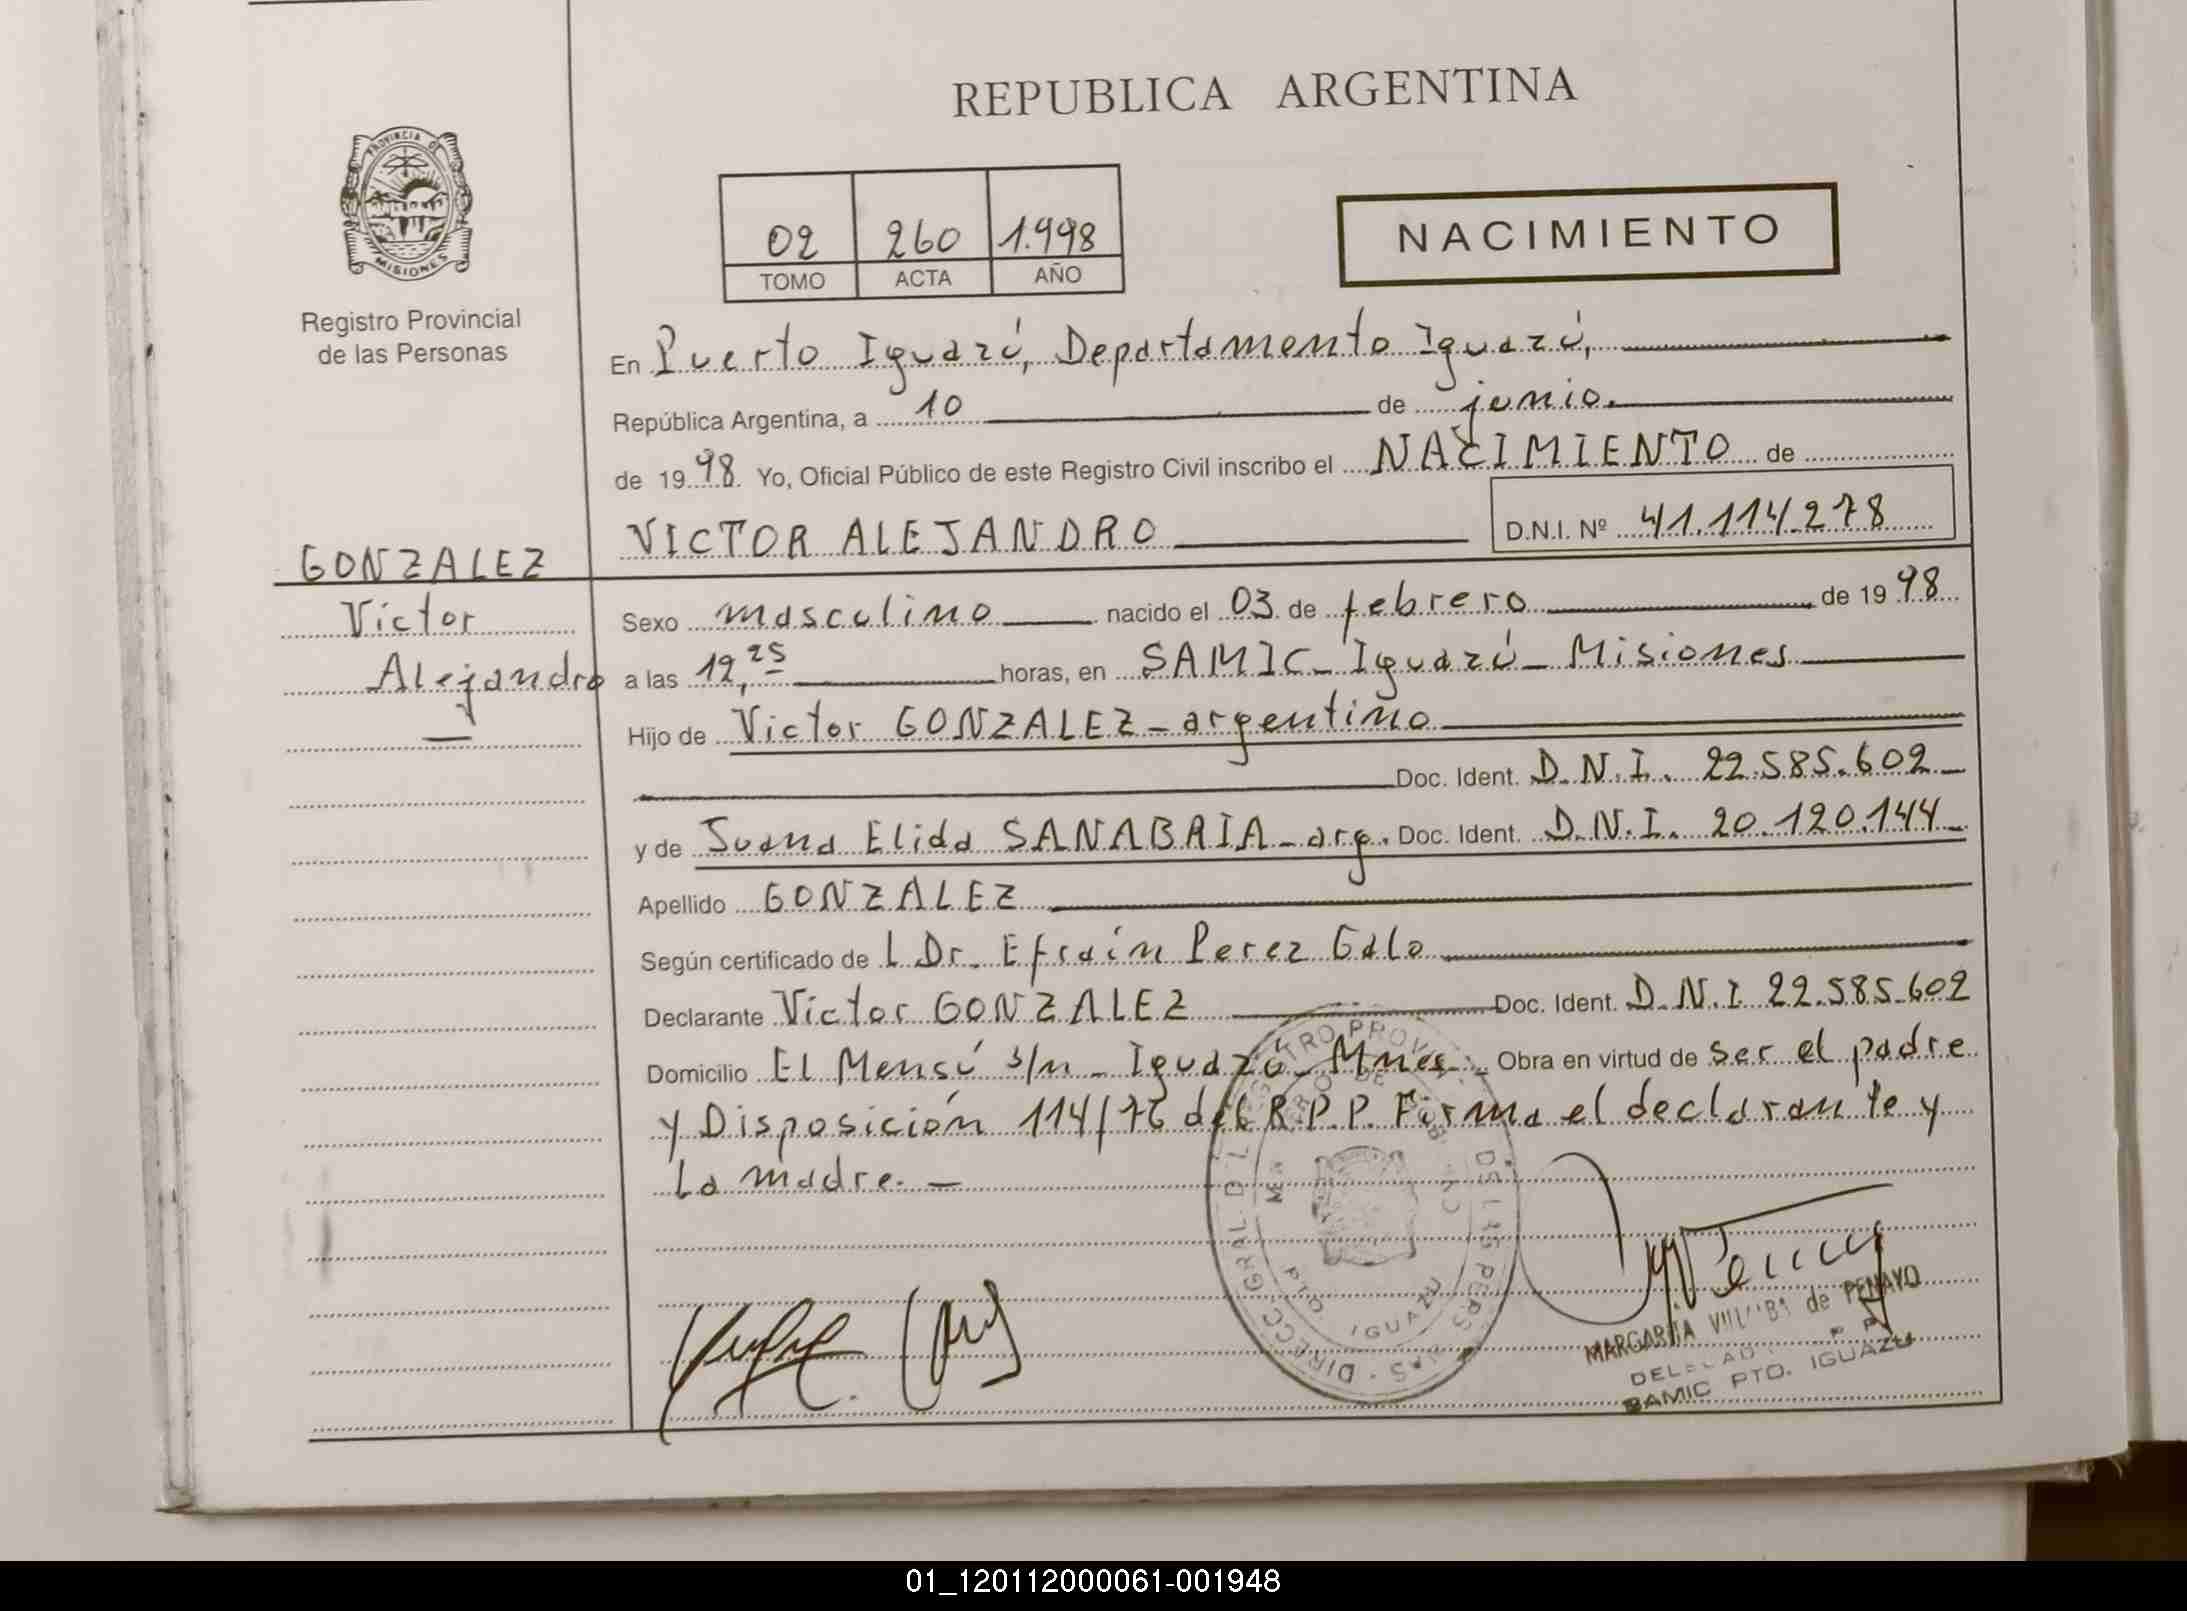 REPUBLICA ARGENTINA
PROVINCIA DE
MISIONES
Registro Provincial
de las Personas
02 260 1.998
TOMO ACTA AÑO
NACIMIENTO
En Puerto Iguazú, Departamento Iguazú,
República Argentina, a 10 de junio.
de 1998 Yo, Oficial Público de este Registro Civil inscribo el NACIMIENTO de
VICTOR ALEJANDRO D.N.I. Nº 41.114.278
GONZALEZ
Victor
Alejandro
Sexo masculino nacido el 03 de febrero de 1998
a las 12,25 horas, en SAMIC - Iguazú - Misiones
Hijo de Victor GONZALEZ - argentino
Doc. Ident. D.N.I. 22.585.602
y de Juana Elida SANABRIA - arg. Doc. Ident. D.N.I. 20.120.144
Apellido GONZALEZ
Según certificado de L Dr. Efraín Perez Galo
Declarante Victor GONZALEZ Doc. Ident. D.N.I 22.585.602
Domicilio El Mensú s/n - Iguazú - Mnes. Obra en virtud de ser el padre
y Disposición 114/76 del R.P.P. Firma el declarante y
la madre. -
DIRECC. GRAL. DEL REGISTRO PROVIN. DE LAS PERSONAS
IGUAZU
MARGARITA de PENAYO
SAMIC PTO. IGUAZU
01_120112000061-001948